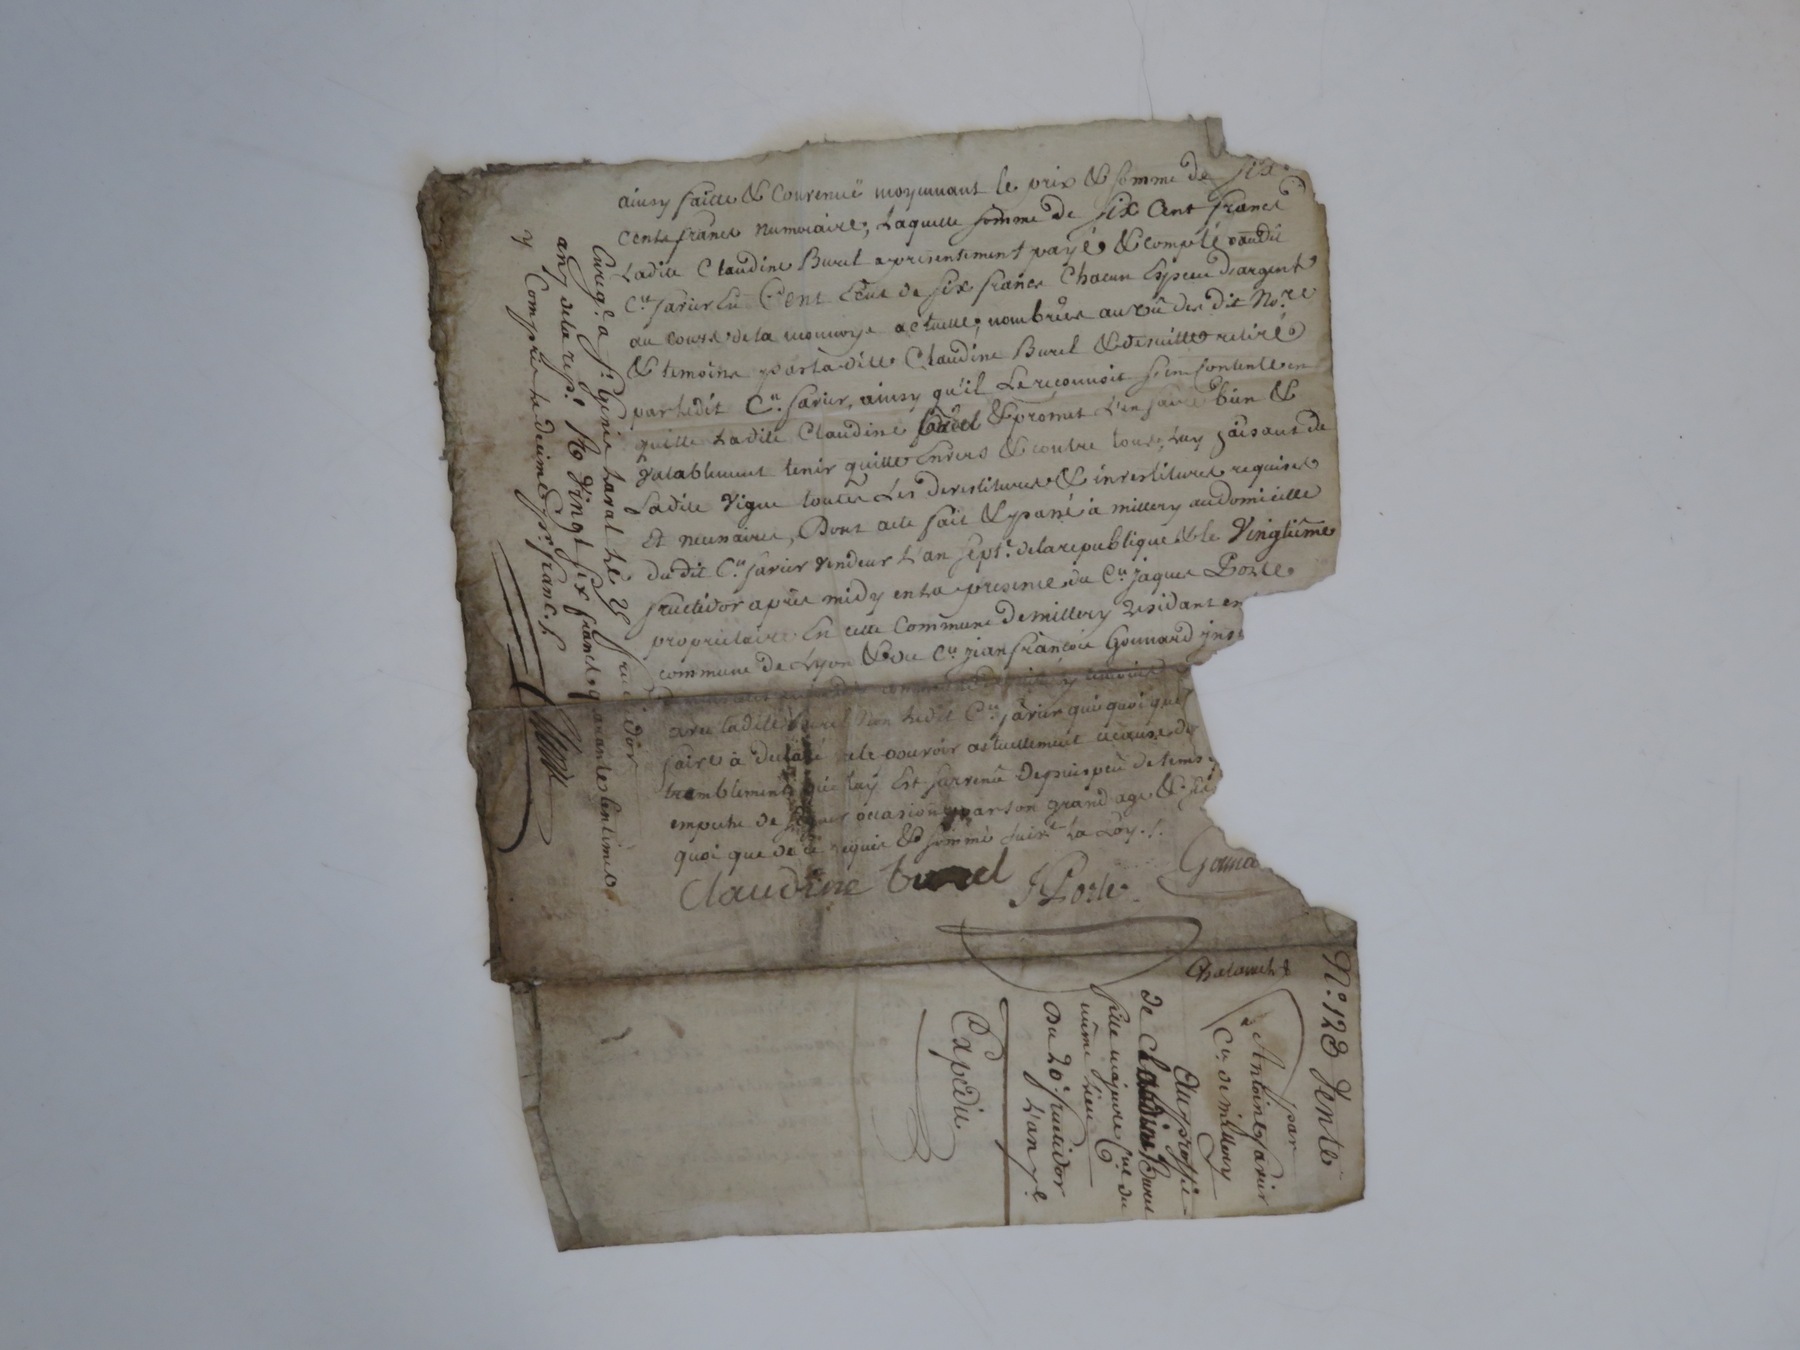 ainsy faitte & convenuë moyennant le prix & somme de six
cents francs numeraire, Laquelle somme de six Cent francs
Ladite Claudine Burel a presentement payé & compté audit
C.en Savier En Cent Ecus de six francs Chacun Espece d'argent
au cours de la monnoye actuelle, nombrées au vû des dit No.re
& temoins par la ditte Claudine Burel & de suitte retiré
par ledit C.en Savier, ainsy qu'il Le reconnoit s'en Contente en
quitte Ladite Claudine Burel & promet L'en faire bien &
valablement tenir quitte Envers & contre tous, Luy faisant de
Ladite Vigne toutes Les devestitures & investitures requises
Et necessaires, Dont acte fait & passé à millery au domicille
du dit C.en Savier vendeur L'an sept.e de la republique & le Vingtième
fructidor après midy en la presence du C.en jaques Poste
proprietaire En cette Commune de millery residant en
commune de Lyon & du C.en jean françois Gounard
avec ladite Burel Non ledit C.en Savier qui quoi que
faire à declaré ne le pouvoir actuellement à cause de
tremblement qui luy Est survenu Depuis peu de tems
empeche de signer occasionné par son grand age &
quoi que de ce requis & sommé suiv.t La Loy ./.
Claudine burel
J Poste
Gouna
Enreg.é a S.t Genis Laval Le 25 fructidor
an 7 de la rep.e R. Vingt six francs quarante centimes
y Compris le decime p.r franc ./.
N.o 128 Vente
par
Antoine Savier
C.en de millery
Au proffit
de Claudine Burel
fille majeure C.ne du
même Lieu
Du 20.e fructidor
L'an 7.e
Expedié